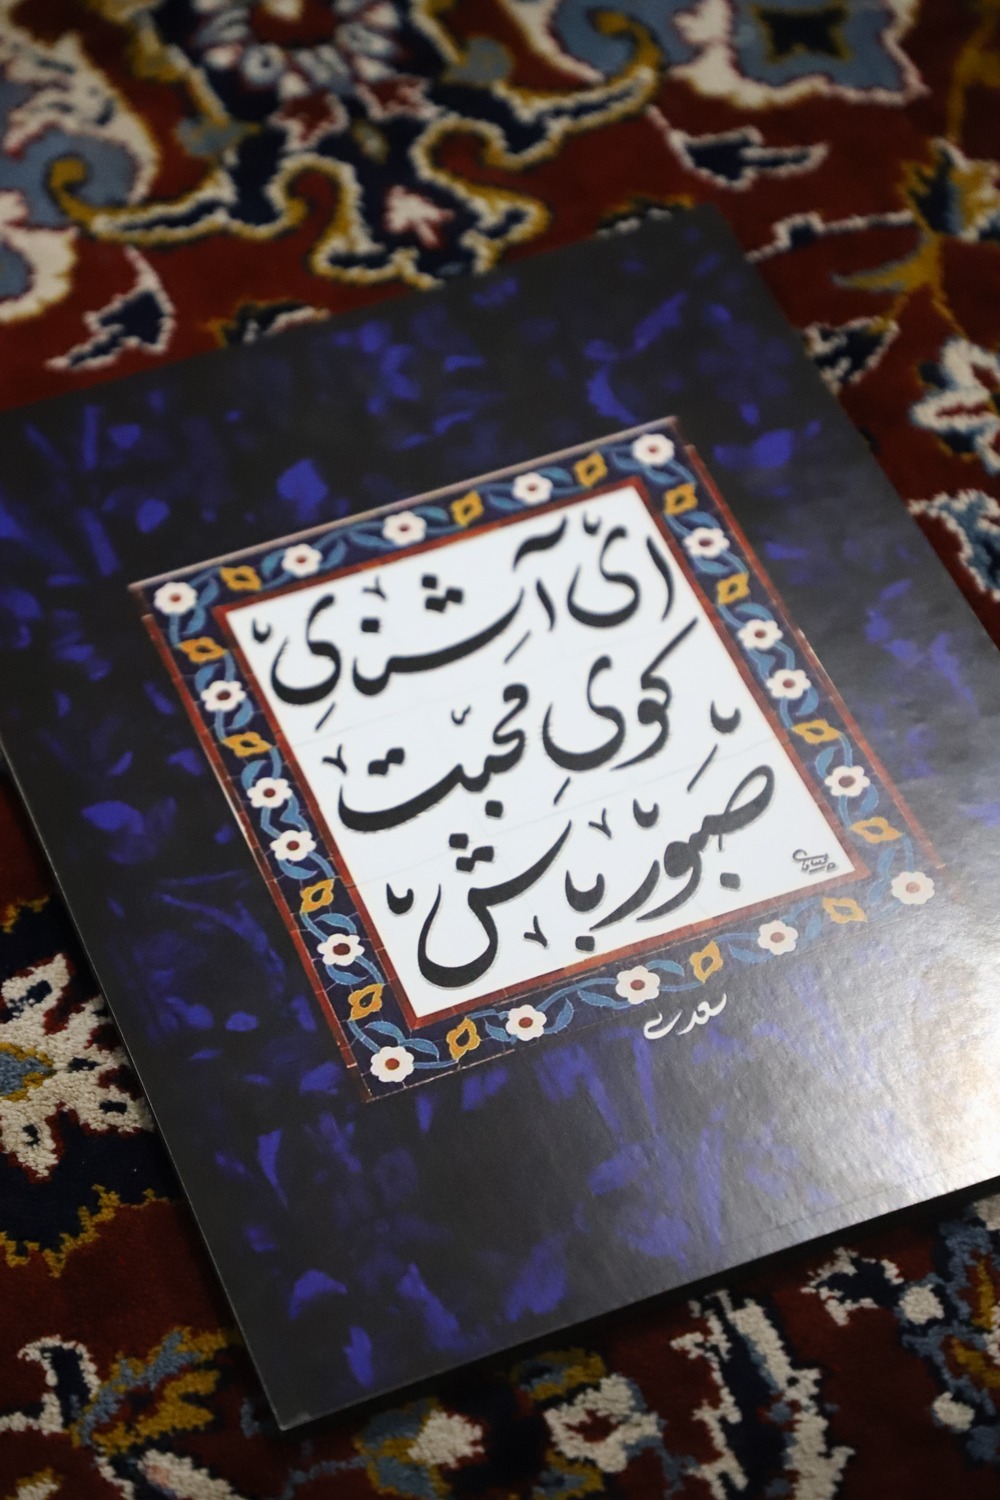 ای آشنای
کوی محبت
صبور باش
سعدی